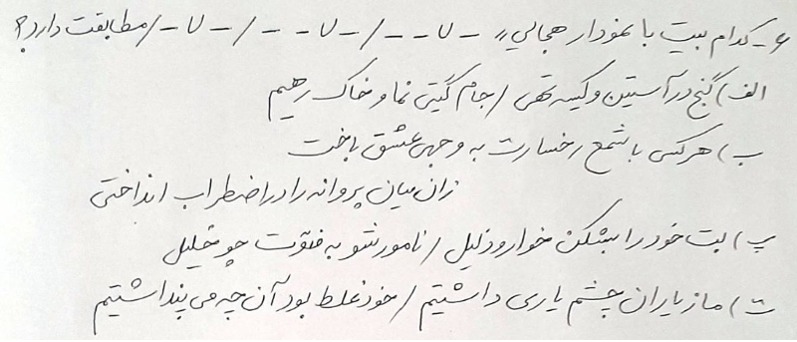 ۶- کدام بیت با نمودار هجایی « - U - - / - U - - / - U - / مطابقت دارد؟
الف) گنج در آستین و کیسه تهی / جام گیتی نما و خاک رهیم
ب) هر کسی با شمع رخسارت به وجهی عشق باخت
زان میان پروانه را در اضطراب انداختی
پ) بت خود را بشکن خوار و ذلیل / نامور شو به فتوت چو خلیل
ت) ما ز یاران چشم یاری داشتیم / خود غلط بود آن چه می پنداشتیم